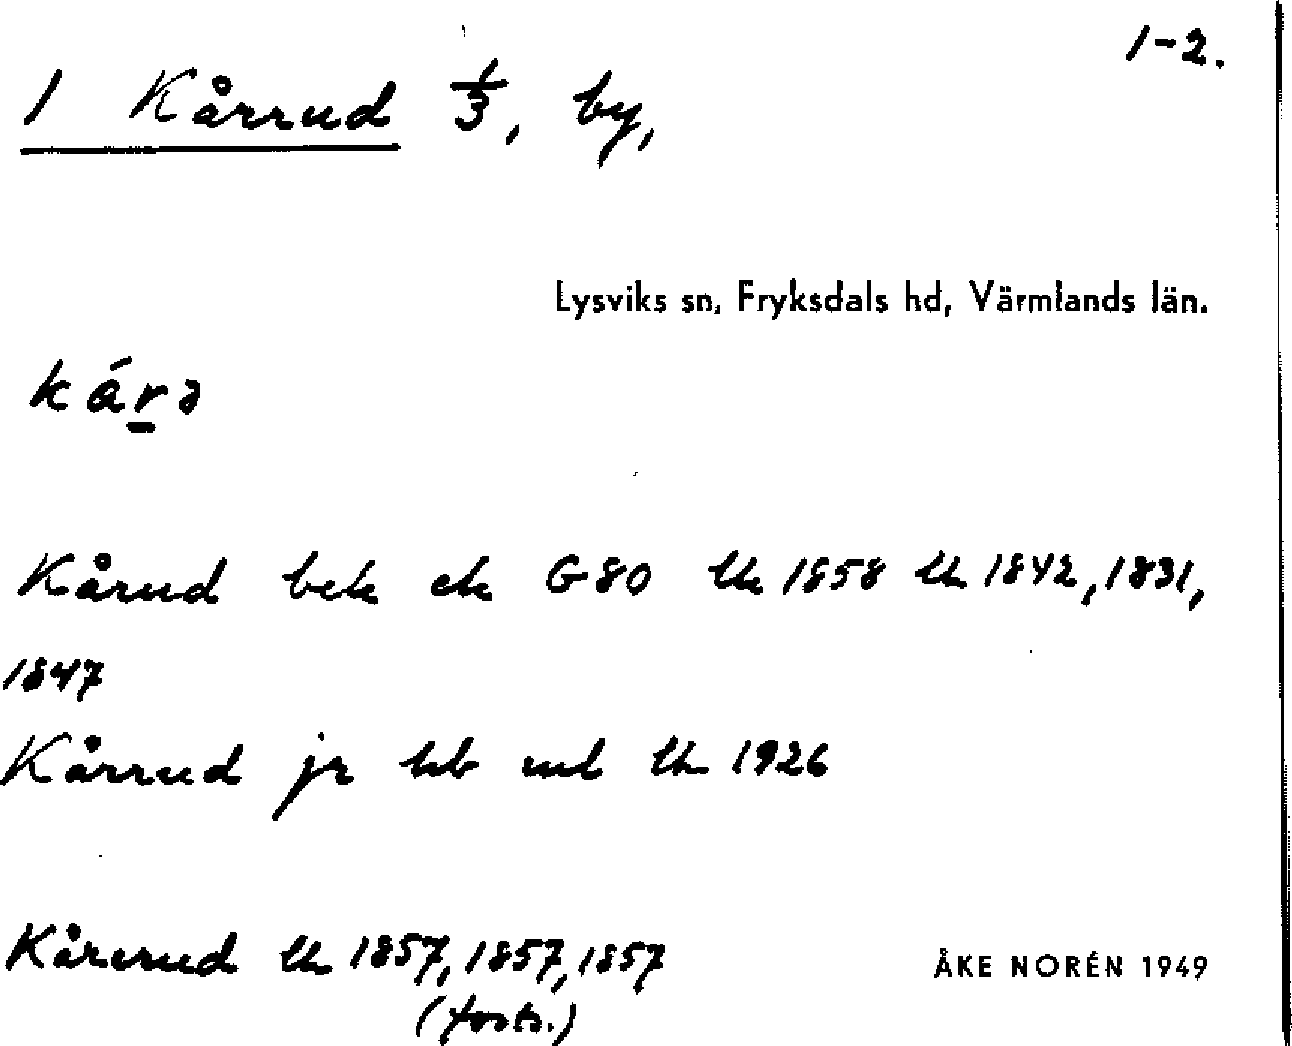 1-2.
1 Kårrud 1/3, by,
Lysviks sn, Fryksdals hd, Värmlands län.
kárə
Kårud bek ek G80 lk 1858 lk 1842, 1831,
1847
Kårrud jr hb ml lk 1926
Kårerud lk 1857, 1857, 1857
(forts.)
ÅKE NORÉN 1949